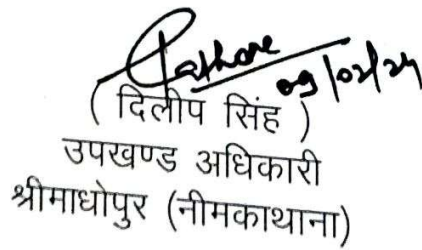 Rathore
09/02/24
( दिलीप सिंह )
उपखण्ड अधिकारी
श्रीमाधोपुर (नीमकाथाना)